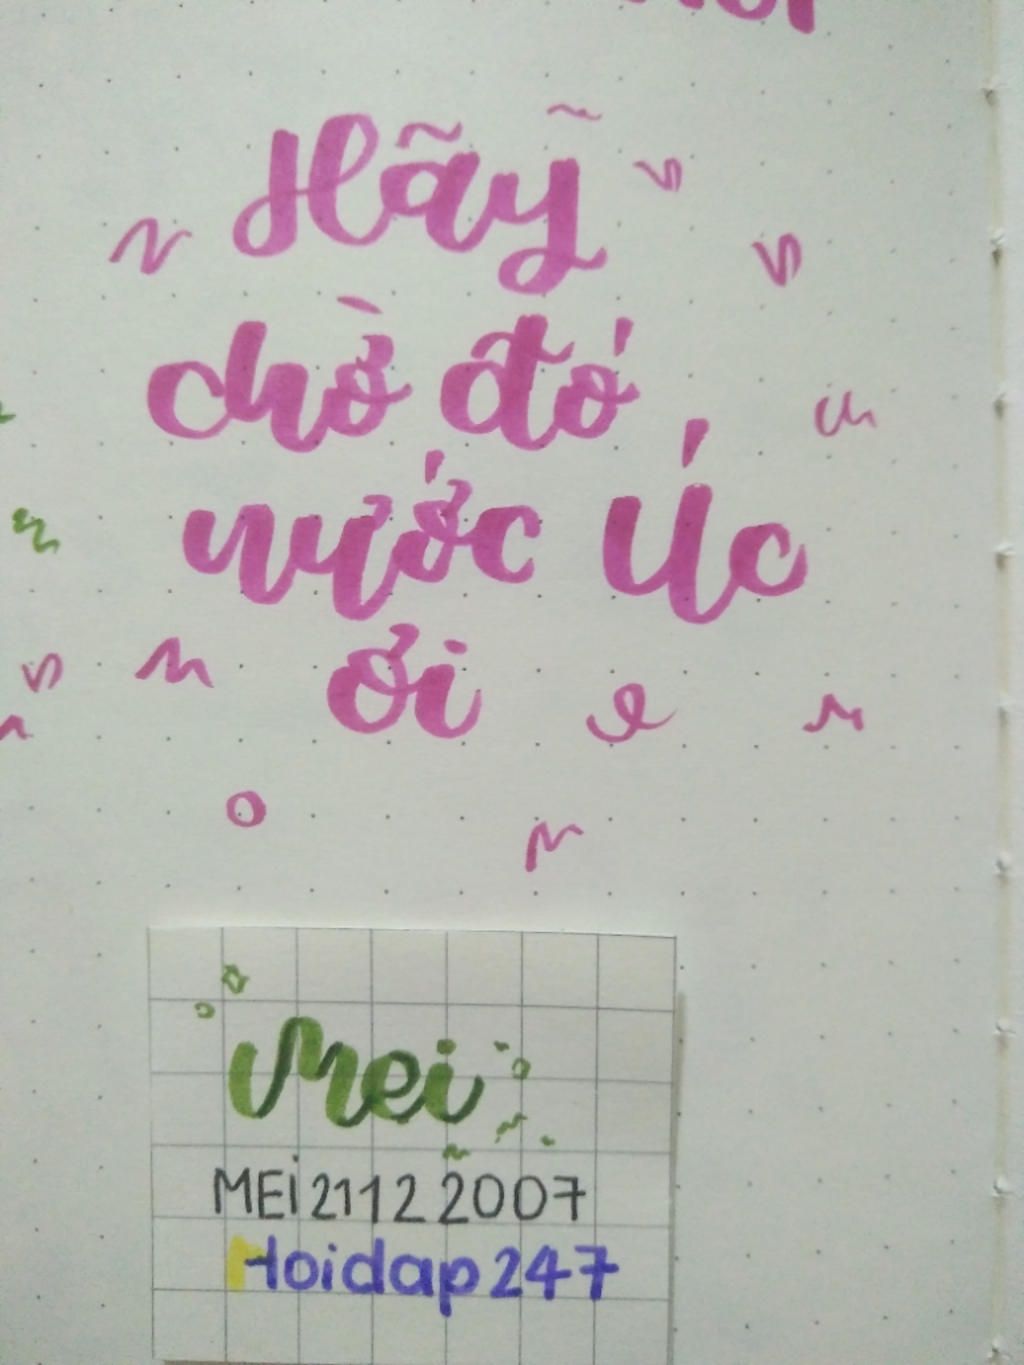 Hãỹ
chờ đó
nước Úc
ơi
Mei
MEi21122007
Hoidap247